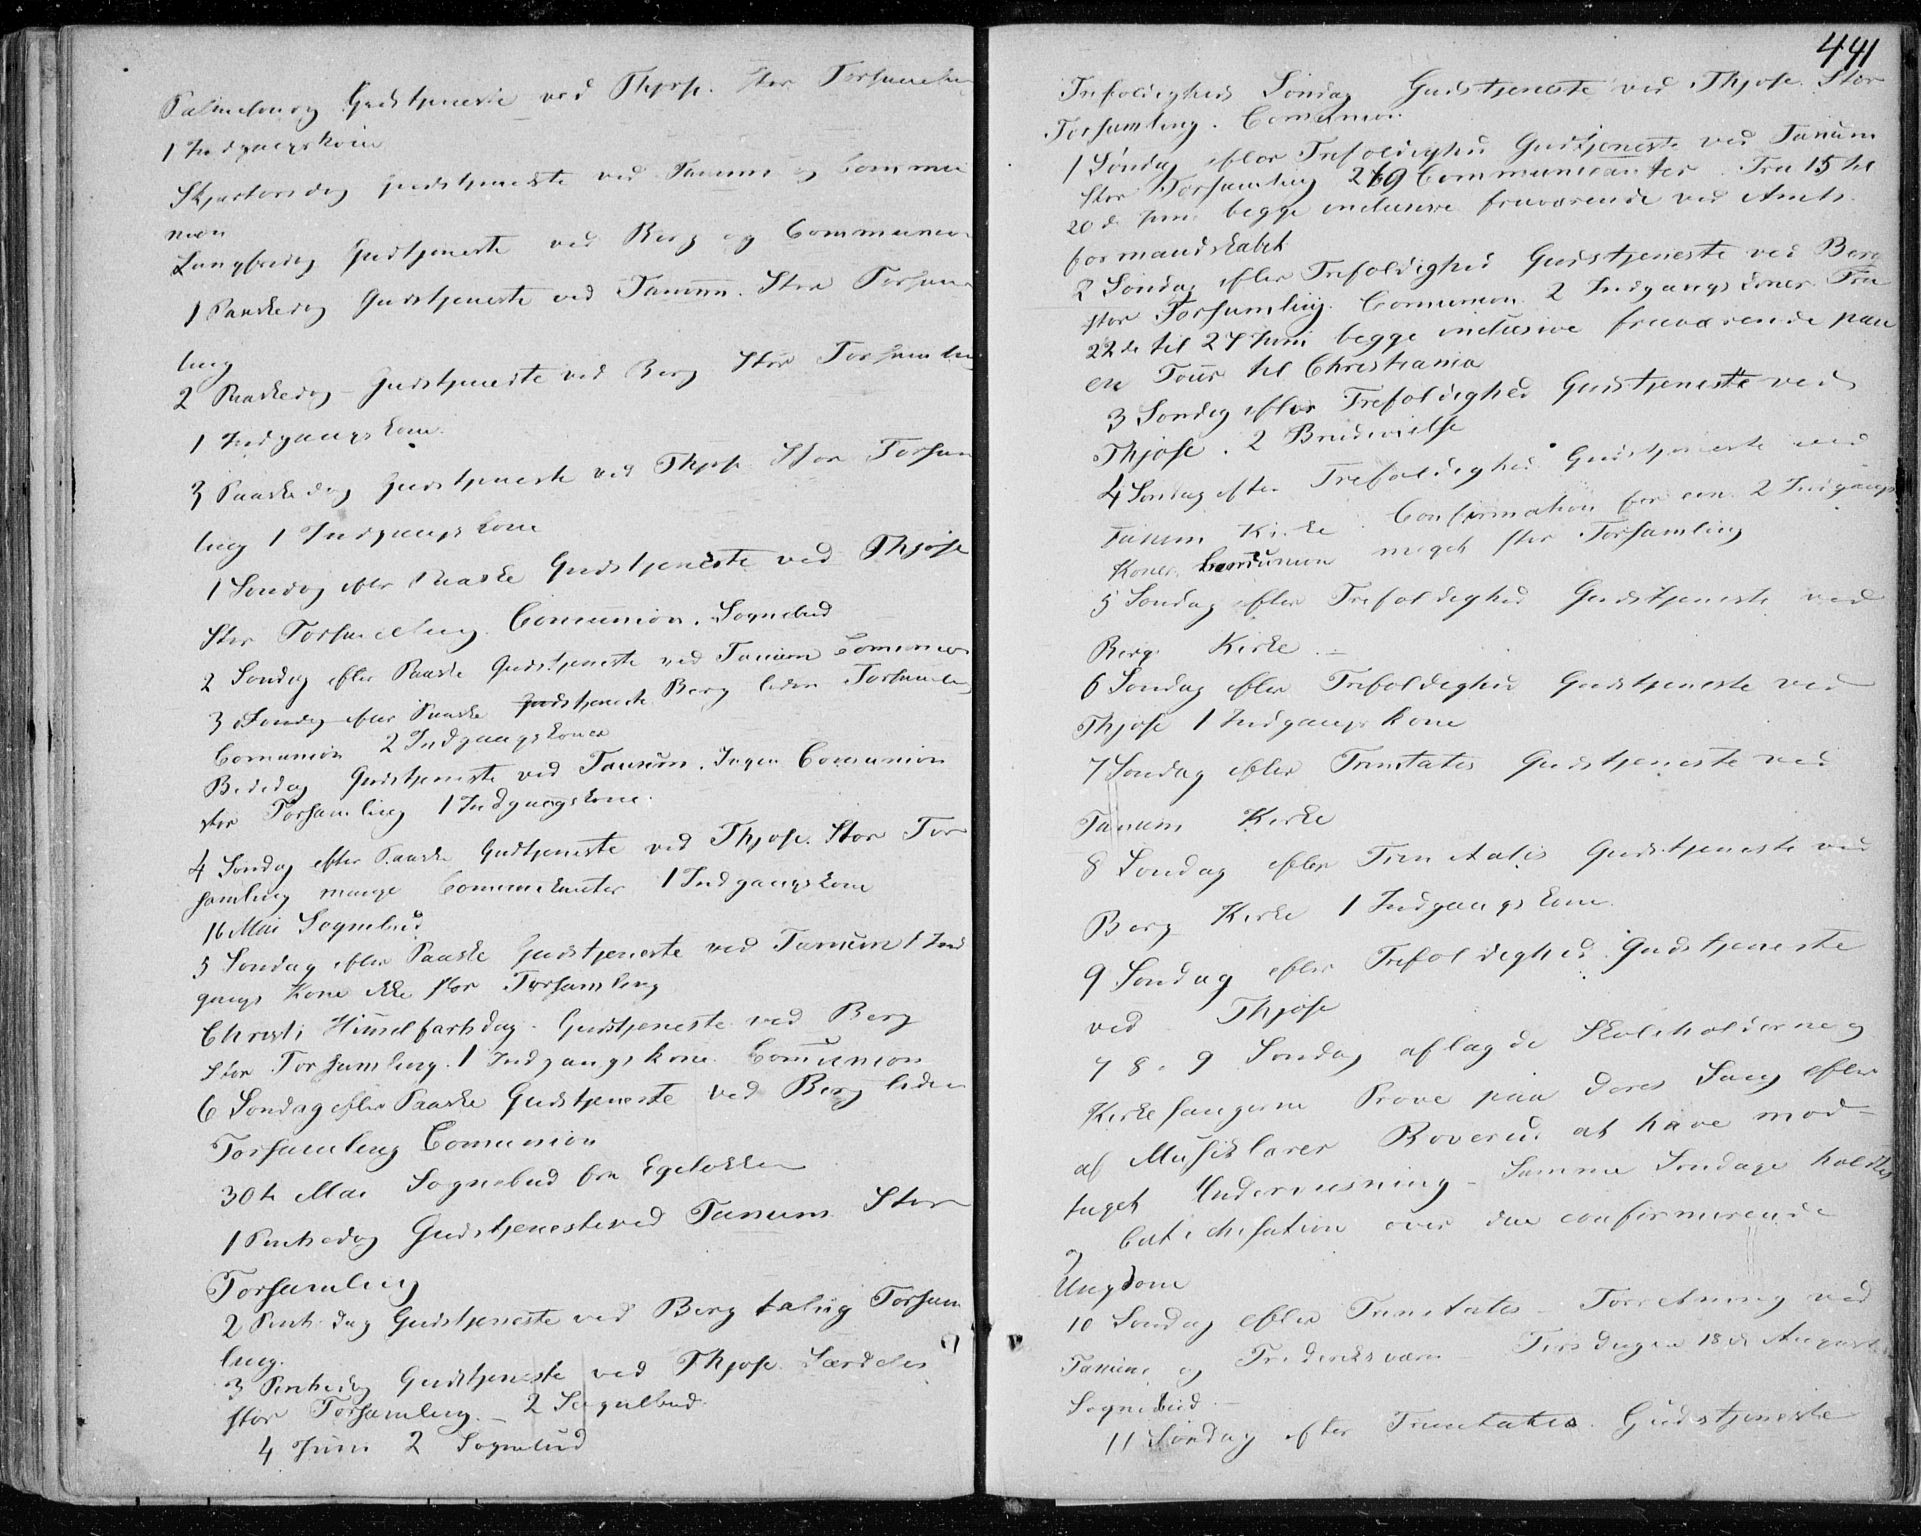 Palmesøndag Gudstjeneste ved Thjose. Stor Forsamling
1 Indgangskone
Skjærtorsdag Gudstjeneste ved Tanum og Commu
nion
Langfredag Gudstjeneste ved Berg og Communion
1 Paaskedag Gudstjeneste ved Tanum. Stor Forsam
ling
2 Paaskedag - Gudstjeneste ved Berg Stor Forsamling
1 Indgangskone.
3 Paaskedag Gudstjeneste ved Thjose Stor Forsam
ling 1 Indgangskone
1 Søndag efter Paaske Gudstjeneste ved Thjose
Stor Forsamling. Comunion. Sognebud
2 Søndag efter Paaske Gudstjeneste ved Tanum Comunion
3 Søndag efter Paaske Gudstjeneste Berg liden Forsamling
Comunion 2 Indgangskoner
Bededag Gudstjeneste ved Tanum. Ingen Comunion
stor Forsamling 1 Indgangskone.
4 Søndag efter Paaske Gudtjeneste ved Thjose. Stor For
samling mange Communikanter 1 Indgangskone
16 Mai Sognebud
5 Søndag efter Paaske Gudstjeneste ved Tanum 1 Ind
gangs Kone ikke stor Forsamling
Christi Himelfartsdag. Gudstjeneste ved Berg
Stor Forsamling. 1 Indgangskone. Comunion
6 Søndag efter Paaske Gudstjeneste ved Berg liden
Forsamling Comunion
30te Mai Sognebud fra Egeløkken
1 Pintsedag Gudstjeneste ved Tanum Stor
Forsamling
2 Pintsedag Gudstjeneste ved Berg talrig Forsam
ling.
3 Pintsedag Gudstjeneste ved Thjose. Særdeles
stor Forsamling. - 2 Sognebud.
4 Juni 2 Sognebud
441
Trefoldigheds Søndag Gudstjeneste ved Thjose. Stor
Forsamling. Comunion.
1 Søndag efter Trefoldighed Gudtjeneste ved Tanum
stor Forsamling 269 Communicanter. Fra 15 til
20de Juni begge inclusive fraværende ved Amts
formandskabet
2 Søndag efter Trefoldighed Gudstjeneste ved Berg
stor Forsamling. Comunion. 2 Indgangskoner. Fra
22de til 27 Juni begge inclusive fraværende paa
en Tour til Christiania
3 Søndag efter Trefoldighed Gudstjeneste ved
Thjose. 2 Brudevielse
4 Søndag efter Trefoldighed Gudstjeneste ved
Tanum Kirke. Confirmation for een. 2 Indgangs
Koner. Comunion meget stor Forsamling
5 Søndag efter Trefoldighed Gudstjeneste ved
Berg Kirke. -
6 Søndag efter Trefoldighed Gudstjeneste ved
Thjose 1 Indgangskone
7 Søndag efter Trinitatis Gudstjeneste ved
Tanum Kirke
8 Søndag efter Trinitatis Gudstjeneste ved
Berg Kirke 1 Indgangskone.
9 Søndag efter Trefoldighed Gudstjeneste
ved Thjose
7 8. 9 Søndag aflagde Skoleholderne og
Kirkesangerne Prøve paa deres Sang efter
af Musiklærer Roverud at have mod-
taget Underviisning - Samme Søndage holdtes
og Catechisation over den confirmerende
Ungdom
10 Søndag efter Trinitatis - Forretning ved
Tanum og Frederiksværn Tirsdagen 18de August
Sognebud -
11 Søndag efter Trinitatis. Gudstjeneste